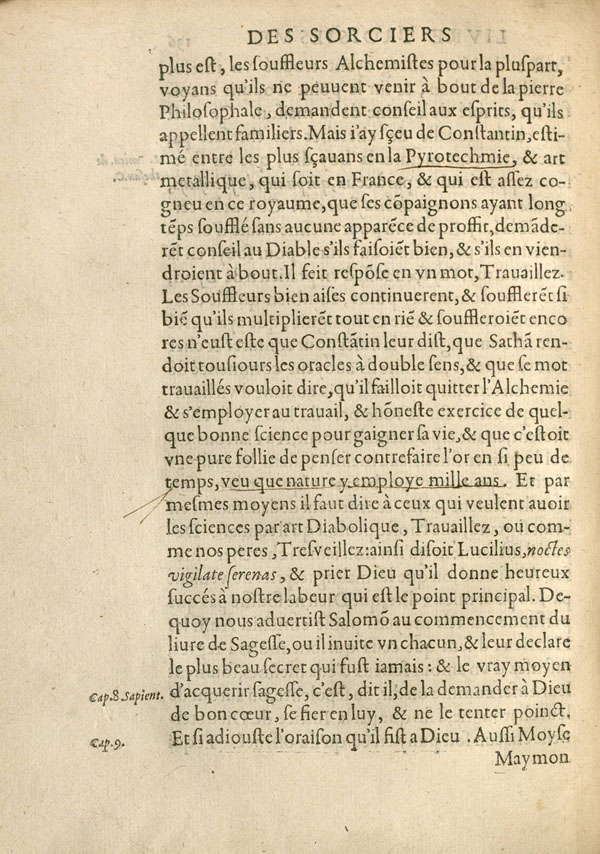 DES SORCIERS
plus est, les souffleurs Alchemistes pour la pluspart,
voyans qu'ils ne peuuent venir à bout de la pierre
Philosophale, demandent conseil aux esprits, qu'ils
appellent familiers. Mais i'ay sçeu de Constantin, esti-
mé entre les plus sçauans en la Pyrotechmie, & art
metallique, qui soit en France, & qui est assez co-
gneu en ce royaume, que ses cõpaignons ayant long
tẽps soufflé sans aucune apparẽce de proffit, demãde-
rẽt conseil au Diable s'ils faisoiẽt bien, & s'ils en vien-
droient à bout. Il feit respõse en vn mot, Trauaillez.
Les Souffleurs bien aises continuerent, & soufflerẽt si
biẽ qu'ils multiplierẽt tout en riẽ & souffleroiẽt enco
res n'eust este que Constãtin leur dist, que Sathã ren-
doit tousiours les oracles à double sens, & que se mot
trauaillés vouloit dire, qu'il failloit quitter l'Alchemie
& s'employer au trauail, & hõneste exercice de quel-
que bonne science pour gaigner sa vie, & que c'estoit
vne pure follie de penser contrefaire l'or en si peu de
temps, veu que nature y employe mille ans. Et par
mesmes moyens il faut dire à ceux qui veulent auoir
les sciences par art Diabolique, Trauaillez, ou com-
me nos peres, Tresveillez: ainsi disoit Lucilius, noctes
vigilate serenas, & prier Dieu qu'il donne heureux
succés à nostre labeur qui est le point principal. De-
quoy nous aduertist Salomõ au commencement du
liure de Sagesse, ou il inuite vn chacun, & leur declare
le plus beau secret qui fust iamais: & le vray moyen
Cap.8 Sapient. d'acquerir sagesse, c'est, dit il, de la demander à Dieu
de bon cœur, se fier en luy, & ne le tenter poinct.
Cap.9. Et si adiouste l'oraison qu'il fist a Dieu. Aussi Moyse
Maymon